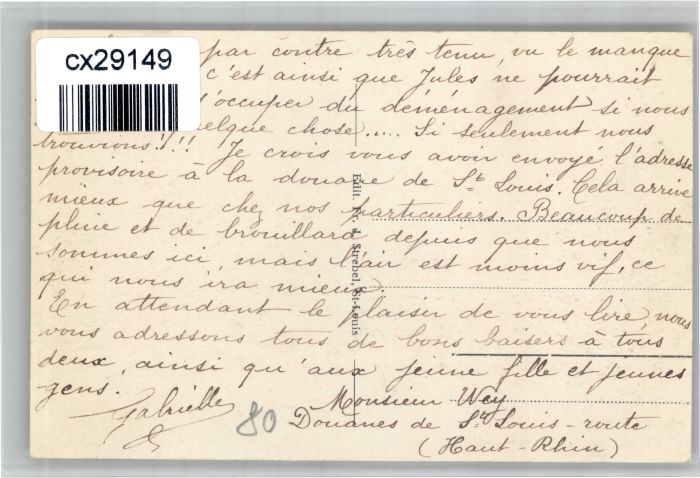 cx29149
par contre très tenu, vu le manque
c'est ainsi que Jules ne pourrait
s'occuper du déménagement si nous
quelque chose..... Si seulement nous
trouvions!!! Je crois vous avoir envoyé l'adresse
provisoire à la douane de St Louis. Cela arrive
mieux que chez nos particuliers. Beaucoup de
pluie et de brouillard depuis que nous
sommes ici, mais l'air est moins vif, ce
qui nous ira mieux.
En attendant le plaisir de vous lire, nous
vous adressons tous de bons baisers à tous
deux, ainsi qu'aux jeune fille et jeunes
gens.
Gabrielle
80
Monsieur Wey
Douanes de St Louis-route
(Haut-Rhin)
Edit. Fr. J. Strebel, St-Louis